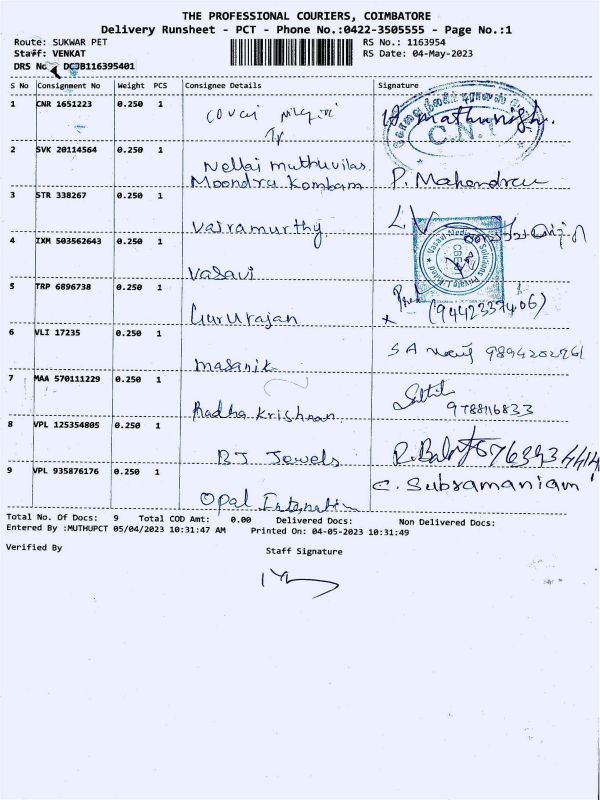 THE PROFESSIONAL COURIERS, COIMBATORE
Delivery Runsheet - PCT - Phone No.:0422-3505555 - Page No.:1
Route: SUKWAR PET RS No.: 1163954
Staff: VENKAT RS Date: 04-May-2023
DRS No. DCJB116395401
S No Consignment No Weight PCS Consignee Details Signature
1 CNR 1651223 0.250 1
C.N.I
2 SVK 20114564 0.250 1
Nellai muthuvilas
Moondru Kombam P. Mahendran
3 STR 338267 0.250 1
Vairamurthy
4 IXM 503562643 0.250 1
Vasavi
5 TRP 6896738 0.250 1
Gururajan (9442337406)
6 VLI 17235 0.250 1
S A 9894202761
masanik
7 MAA 570111229 0.250 1
Radha Krishnan 9788116833
8 VPL 125354805 0.250 1
BJ Jewels
9 VPL 935876176 0.250 1 C. Subramaniam
Opal
Total No. Of Docs: 9 Total COD Amt: 0.00 Delivered Docs: Non Delivered Docs:
Entered By :MUTHUPCT 05/04/2023 10:31:47 AM Printed On: 04-05-2023 10:31:49
Verified By Staff Signature